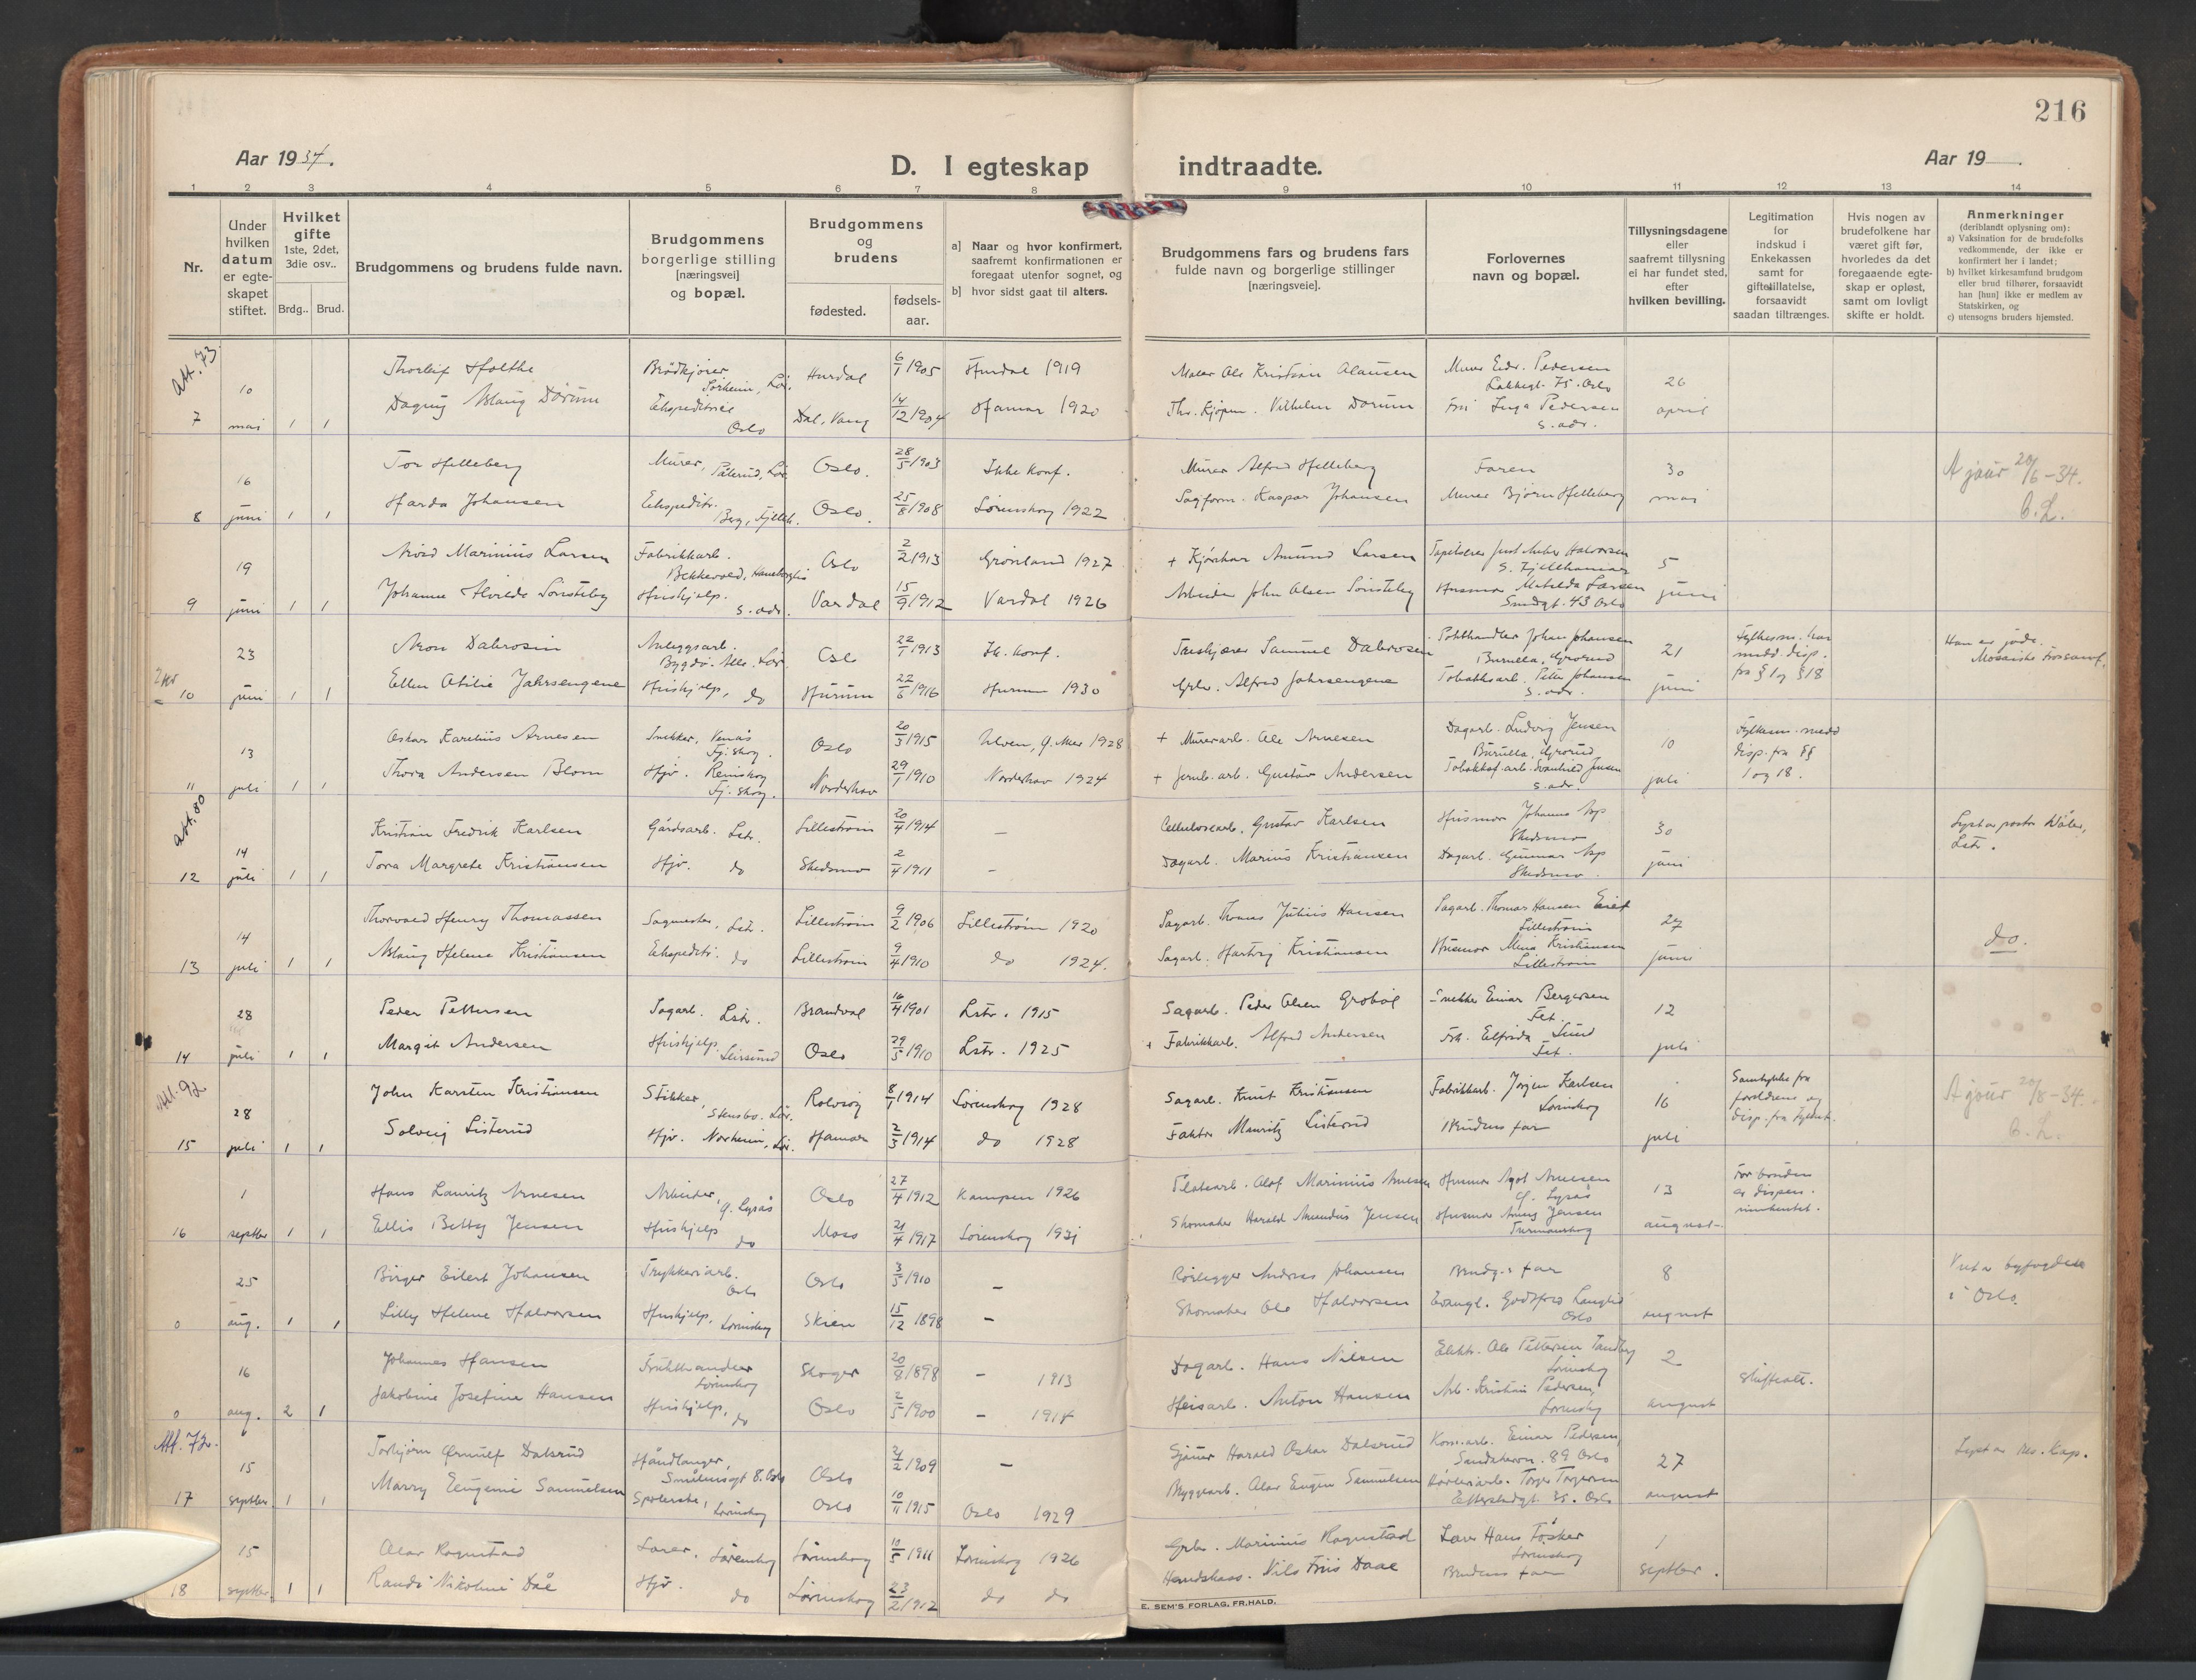 216
Aar 1934.
D. I egteskap indtraadte.
Aar 19
1 2 3 4 5 6 7 8 9 10 11 12 13 14
Nr.
Under hvilken datum er egteskapet stiftet.
Hvilket gifte
1ste, 2det, 3die osv..
Brdg.. Brud.
Brudgommens og brudens fulde navn.
Brudgommens borgerlige stilling [næringsvei] og bopæl.
Brudgommens og brudens
fødested.
fødsels-aar.
a] Naar og hvor konfirmert, saafremt konfirmationen er foregaat utenfor sognet, og
b] hvor sidst gaat til alters.
Brudgommens fars og brudens fars fulde navn og borgerlige stillinger [næringsveie].
Forlovernes navn og bopæl.
Tillysningsdagene eller saafremt tillysning ei har fundet sted, efter hvilken bevilling.
Legitimation for indskud i Enkekassen samt for giftetillatelse, forsaavidt saadan tiltrænges.
Hvis nogen av brudefolkene har været gift før, hvorledes da det foregaaende egteskap er opløst, samt om lovligt skifte er holdt.
Anmerkninger
(deriblandt oplysning om):
a) Vaksination for de brudefolks vedkommende, der ikke er konfirmert her i landet;
b) hvilket kirkesamfund brudgom eller brud tilhører, forsaavidt han [hun] ikke er medlem av Statskirken, og
c) utensogns bruders hjemsted.
Att. 73
Thorleif Holthe Brødkjører Hurdal 6/1 1905 Hurdal 1919 Maler Ole Kristian Clausen Murer Edv. Pedersen Lakkegt. 75. Oslo 26
7 10 mai 1 1 Dagny Aslaug Dørum Ekspeditrise Oslo Dal, Vang 14/12 1904 Hamar 1920 Thv. Kjøpm. Vilhelm Dørum Fru Inga Pedersen s. adr. april
Tor Helleberg Murer, Oslo. 28/5 1903 Ikke konf. Murer Alfred Helleberg Faren 30 A jour 20/6-34.
8 16 juni 1 1 Harda Johansen Ekspeditr. Berg, Fjellh. Oslo. 25/8 1908 Lørenskog 1922 Sagform. Kaspar Johansen Murer Bjørn Helleberg mai
Arvid Marinius Larsen Fabrikkarb. Oslo 2/2 1913 Grønland 1927 + Amund Larsen Halvorsen 5
9 19 juni 1 1 Johanne Alvilde Sønsteby Hushjelp. s. adr. Vardal 15/9 1912 Vardal 1926 Arbeider John Olsen Sønsteby Husmor Matilda Larsen Smedgt. 43 Oslo juni
Aron Dabrosin Anleggsarb. Oslo 22/1 1913 Ik. konf. Samuel Dabrosin Johan Johansen Grorud 21 Fylkesm. har medd. disp. fra § 1 og § 18 Han er jøde. Mosaiske trossamf.
10 23 juni 1 1 Ellen Otilie Jahrsengene Hushjelp, do Hurum 22/6 1916 Hurum 1930 Grbr. Alfred Jahrsengene Tobakksarb. Peter Johansen s. adr. juni
Oskar Karelius Arnesen Snekker, Fj. skog. Oslo 20/3 1915 1928 + Murerarb. Ole Arnesen Dagarb. Ludvig Jensen Grorud 10 Fylkesm. medd disp. fra §§ 1 og 18.
11 13 juli 1 1 Thora Andersen Blom Hjv. Fj. skog. Norderhov 29/1 1910 Norderhov 1924 + Jernb. arb. Gustav Andersen Jensen s. adr. juli
Att. 80
Kristian Fredrik Karlsen Gårdsarb. Lstr. Lillestrøm 20/4 1914 – Cellulosearb. Gustav Karlsen Husmor Johanne Asp Skedsmo 30 Lyst av pastor Wåler, Lstr.
12 14 juli 1 1 Tora Margrete Kristiansen Hjv. do Skedsmo 2/4 1911 – Dagarb. Marius Kristiansen Dagarb. Gunnar Asp Skedsmo. juni
Thorvald Henry Thomassen Sagmester, Lstr. Lillestrøm 9/2 1906 Lillestrøm 1920 Sagarb. Thomas Julius Hansen Sagarb. Thomas Hansen Lillestrøm 27 do.
13 14 juli 1 1 Aslaug Helene Kristiansen Ekspeditr. do Lillestrøm 9/4 1910 do 1924. Sagarb. Hartvig Kristiansen Husmor Mina Kristiansen Lillestrøm juni
Peder Pettersen Sagarb. Lstr. Brandval 16/4 1901 Lstr. 1915 Sagarb. Peder Olsen Grobøl Snekker Einar Bergersen Fet. 12
14 28 juli 1 1 Margit Andersen Hushjelp Leirsund Oslo 29/5 1910 Lstr. 1925 + Fabrikkarb. Alfred Andersen Frk. Elfrida Lund Fet. juli
Att. 92
John Karsten Kristiansen Stikker, Stensbo. Lør. Rolvsøy 8/1 1914 Lørenskog 1928 Sagarb. Knut Kristiansen Fabrikkarb. Jørgen Karlsen Lørenskog 16 Samtykke fra foreldrene og disp. fra Fylkesm. A jour 20/8-34.
15 28 juli 1 1 Solveig Listerud Hjv. Norheim, Lør. Hamar 2/3 1914 do 1928 Faktor Mauritz Listerud Brudens far juli
Hans Lauritz Arnesen Arbeider, Oslo 27/4 1912 Kampen 1926 Olof Marinius Arnesen Husmor Agot Arnesen 13 For bruden er dispen. innhentet.
16 1 septbr 1 1 Ellis Betty Jensen Hushjelp do Moss 21/4 1917 Lørenskog 1931 Skomaker Harald Amandus Jensen Husmor Jensen august
Birger Eilert Johansen Trykkeriarb. Oslo Oslo 3/5 1910 – Rørlegger Andreas Johansen Brudg.s far 8 Viet av byfogden i Oslo.
0 25 aug. 1 1 Lilly Helene Halvorsen Hushjelp. Lørenskog Skien 15/12 1898 – Skomaker Ole Halvorsen Evangl. Oslo august
Johannes Hansen Frukthandler Lørenskog Skoger 20/8 1898 – 1913 Dagarb. Hans Nilsen Elektr. Ole Pettersen Tandberg Lørenskog 2 skifteatt.
0 16 aug. 2 1 Jakobine Josefine Hansen Hushjelp, do Oslo 2/5 1900 – 1914 Heisarb. Anton Hansen Arb. Kristian Pedersen, Lørenskog august
Att. 72.
Torbjørn Ørnulf Dalsrud Håndlanger, Smålensgt 8. Oslo Oslo 21/2 1909 – Harald Oskar Dalsrud Einar Pedersen, 89 Oslo 27 Lyst av res. kap.
17 15 septbr. 1 1 Marry Eugenie Samuelsen Spolerske, Lørenskog Oslo 10/11 1915 Oslo 1929 Byggearb. Olav Eugen Samuelsen Torger Torgersen Oslo august
Olav Rognstad Lærer. Lørenskog Lørenskog 10/5 1911 Lørenskog 1926 Grbr. Marinius Rognstad Lærer Hans Lørenskog 1
18 15 septbr 1 1 Randi Nikoline Dåe Hjv. do Lørenskog 23/2 1912 do do Nils Friis Daae Brudens far septbr.
E. SEM'S FORLAG, FR.HALD.